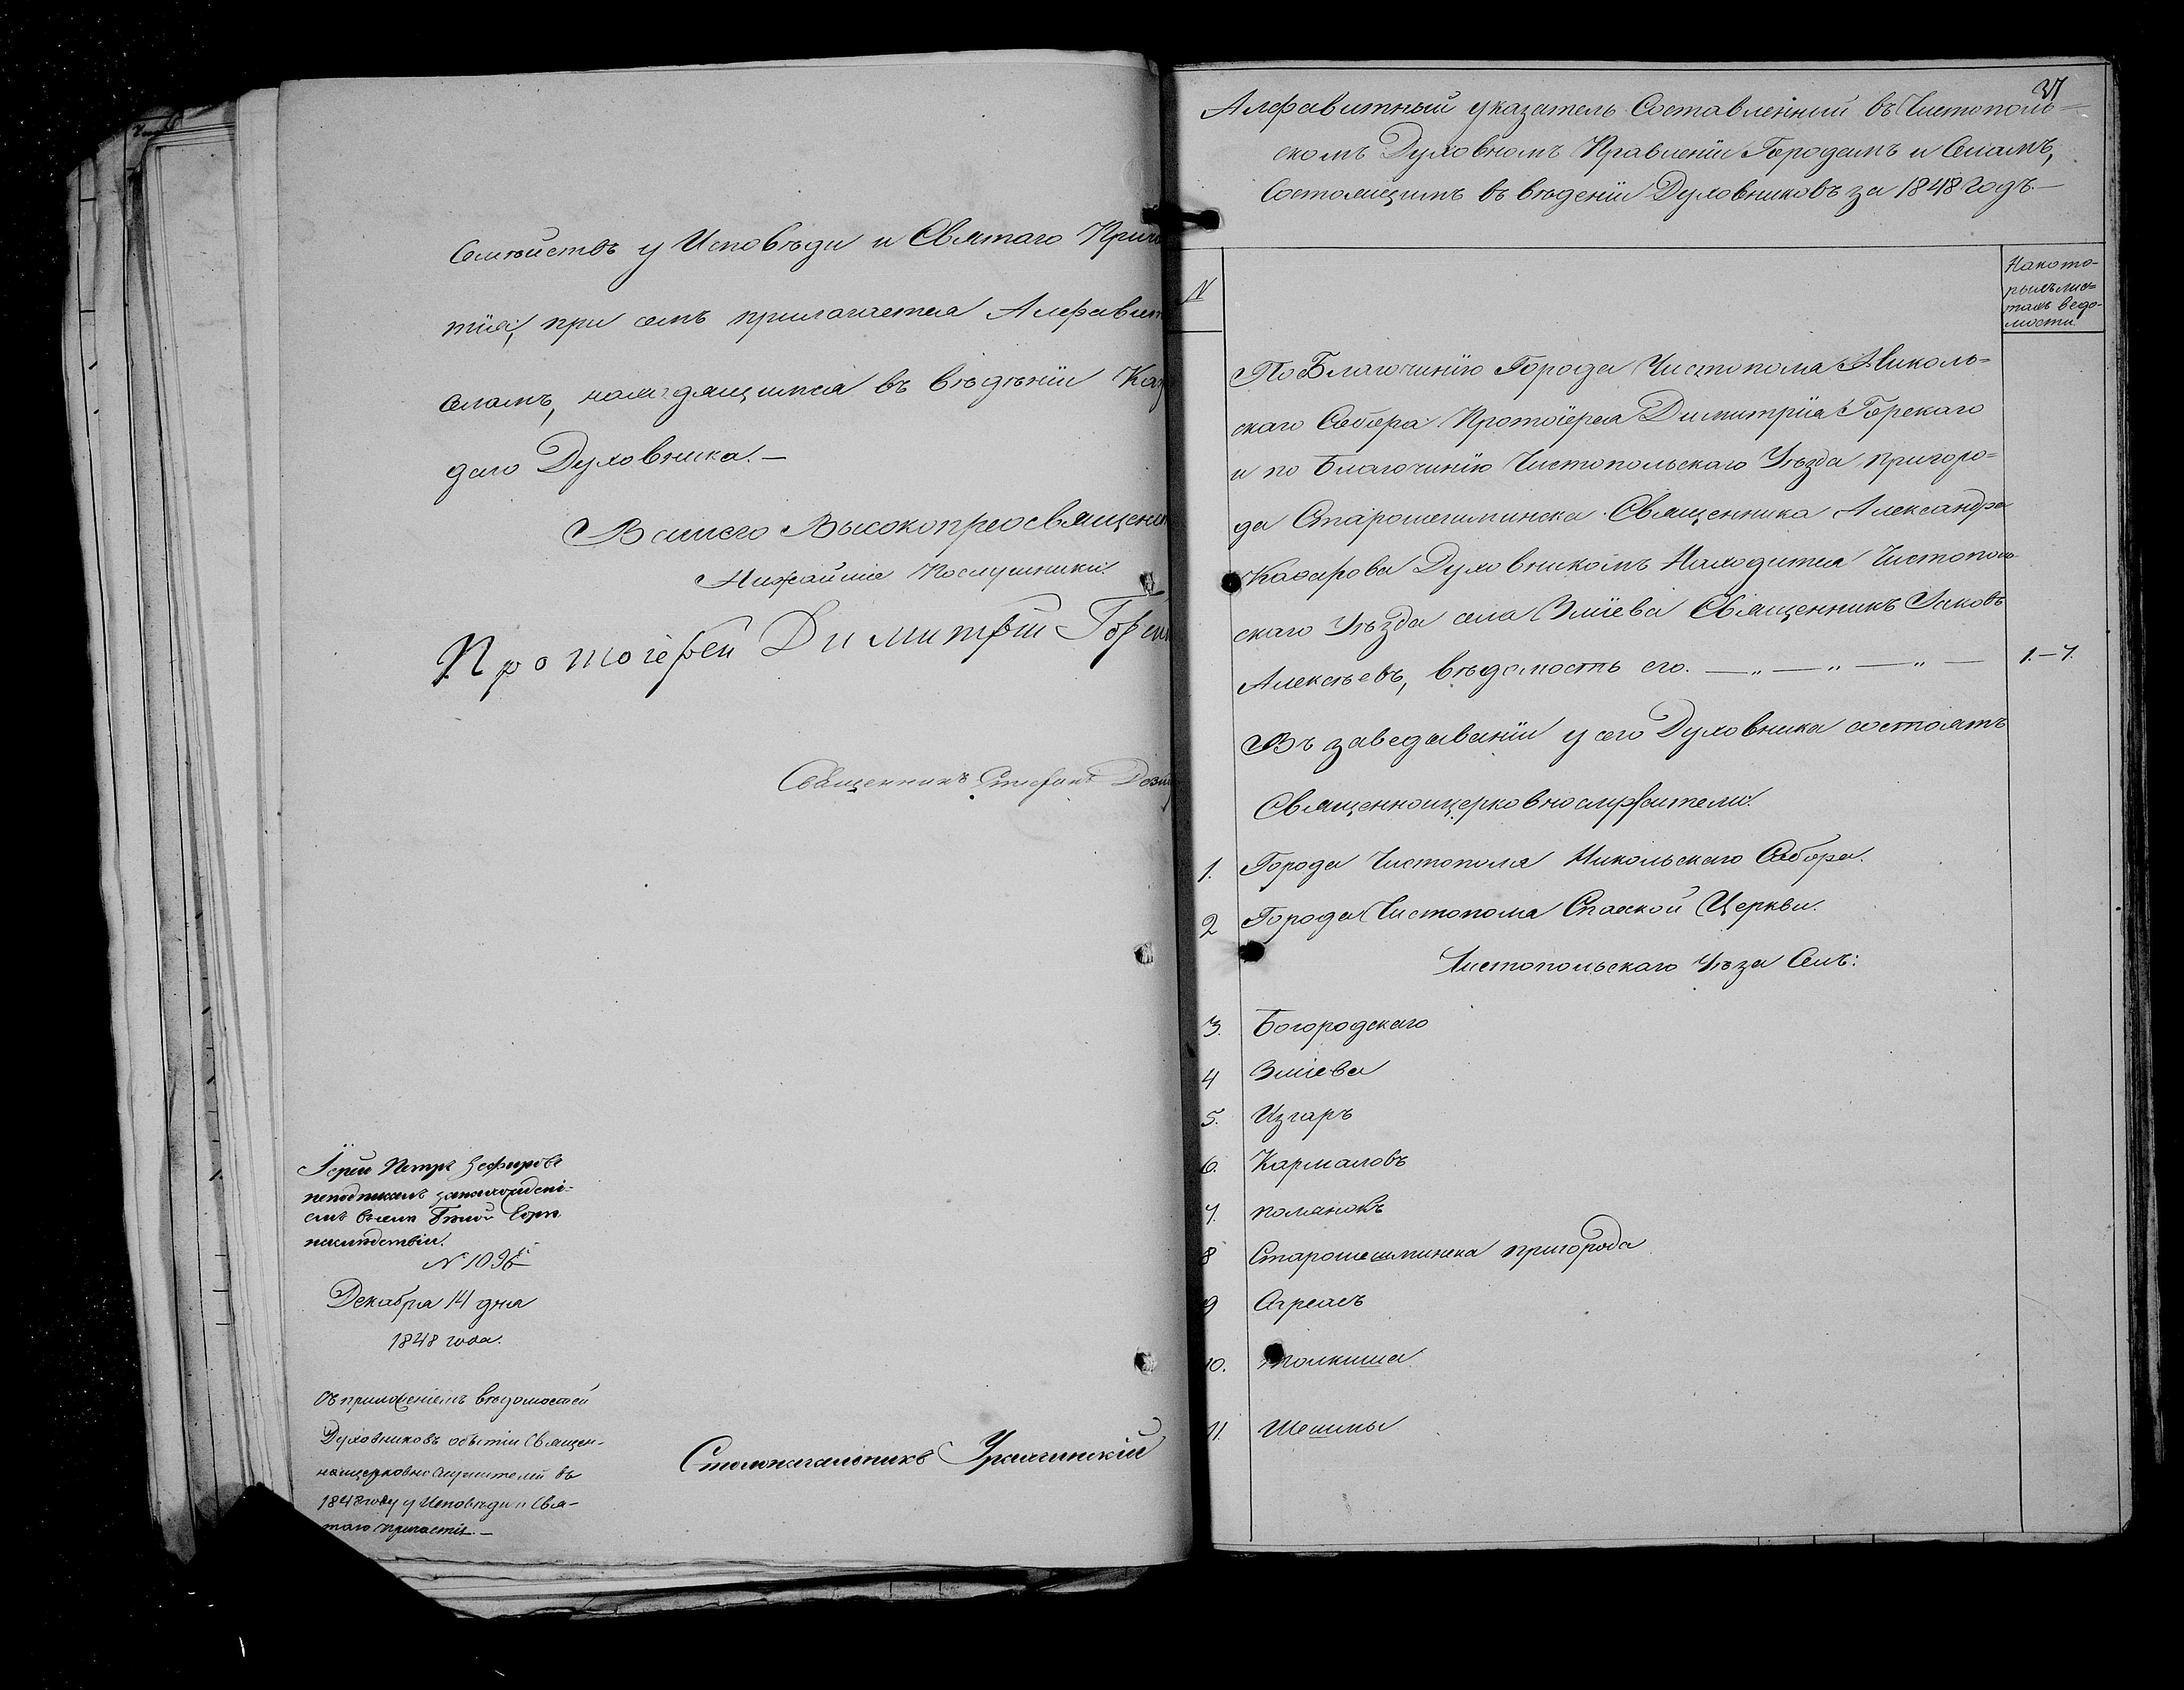 Семействъ у Исповѣди и Святаго Прича
тія, при семъ прилагается Алфавит
Селамъ, находящимся въ вѣдѣніи Каж
даго Духовника.—
Вашего Высокопреосвящен
Нижайшіе Послушники:
Протоіерей Димитрій Горс
Священникъ Стефанъ
Іерей Петръ Зефировъ
неподписалъ занахожденіемъ
N 1096
Декабря 14 дня
1848 года.
Съ приложеніемъ вѣдомостей
Духовниковъ объ бытіи Священ-
ноцерковнослужителей въ
1848 году у Исповѣди и Свя-
таго причастія.—
Столоначальникъ
37
Алфавитный указатель Составленный въ Чистополь=
скомъ Духовномъ Правленіи Городамъ и Селамъ,
Состоящимъ въ вѣденіи Духовниковъ за 1848 годъ.—
N
На кото-
рыхъ лис-
тахъ ведо-
мости.
По Благочинію Города Чистополя Николь=
скаго Собора Протоіерея Димитрія Горскаго
и по Благочинію Чистопольскаго Уѣзда пригоро=
да Старошешминска Священника Александра
Касарова Духовникомъ Находится Чистополь-
скаго Уѣзда села Змѣева Священникъ Іаковъ
Алексѣевъ, вѣдомость его. — „ — „ — „ — 1.—7.
Въ заведываніи у сего Духовника состоятъ
Священноицерковнослужители:
1. Города Чистополя Никольскаго Собора.
2 Города Чистополя Спаской Церкви.
Чистопольскаго Уѣза Селъ:
3. Богородскаго
4 Зміева
5. Изгаръ
6. Кармаловъ
7. полянокъ
8 Старошешминска пригорода
9 Сарсасъ
10. толкиша
11. Шешмы